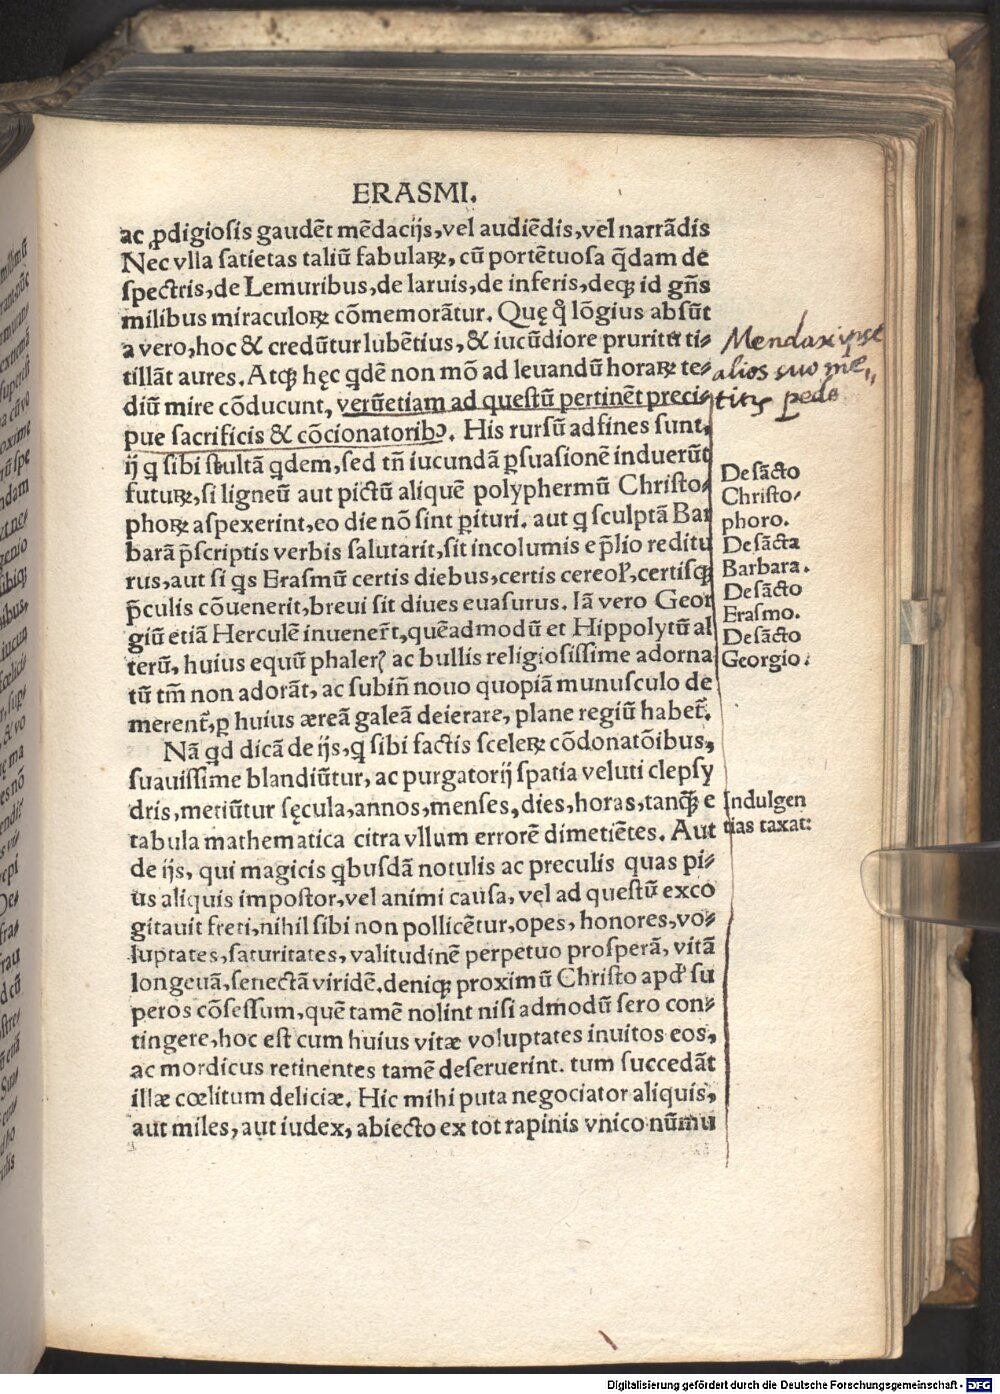 ERASMI.
ac ꝓdigiosis gaudēt mēdacijs, vel audiēdis, vel narrādis
Nec vlla satietas taliū fabulaꝝ, cū portētuosa q̄dam de
spectris, de Lemuribus, de laruis, de inferis, deqꝫ id gn̄s
milibus miraculoꝝ cōmemorātur. Quę q̊ lōgius absūt
a vero, hoc & credūtur lubētius, & iucūdiore pruritu ti⸗
tillāt aures. Atqꝫ hęc qdē non mō ad leuandū horaꝝ te⸗
diū mire cōducunt, verūetiam ad questū pertinēt preci⸗
pue sacrificis & cōcionatoribꝰ. His rursū adfines sunt,
ij q sibi stultā qdem, sed tn̄ iucundā ꝑsuasionē induerūt
futuꝝ, si ligneū aut pictū aliquē polyphermū Christo⸗
phoꝝ aspexerint, eo die nō sint ꝑituri. aut q sculptā Bar
barā p̄scriptis verbis salutarit, sit incolumis e p̄lio reditu
rus, aut si qs Erasmū certis diebus, certis cereol̕, certisqꝫ
p̄culis cōuenerit, breui sit diues euasurus. Iā vero Geor
giū etiā Herculē inuener̄t, quēadmodū et Hippolytū al
terū, huius equū phaler̕ ac bullis religiosissime adorna
tū tm̄ non adorāt, ac subin̄ nouo quopiā munusculo de
merent̄, ꝑ huius æreā galeā deierare, plane regiū habet̄.
Nā qd dicā de ijs, q sibi factis sceleꝝ cōdonatōibus,
suauissime blandiūtur, ac purgatorij spatia veluti clepsy
dris, metiūtur sęcula, annos, menses, dies, horas, tanqꝫ̄ e
tabula mathematica citra vllum errorē dimetiētes. Aut
de ijs, qui magicis qbusdā notulis ac preculis quas pi⸗
us aliquis impostor, vel animi causa, vel ad questū exco
gitauit freti, nihil sibi non pollicētur, opes, honores, vo⸗
luptates, saturitates, valitudinē perpetuo prosperā, vitā
longeuā, senectā viridē. deniqꝫ proximū Christo apd̕ su
peros cōsessum, quē tamē nolint nisi admodū sero con⸗
tingere, hoc est cum huius vitæ voluptates inuitos eos,
ac mordicus retinentes tamē deseruerint. tum succedāt
illæ cœlitum deliciæ. Hic mihi puta negociator aliquis,
aut miles, aut iudex, abiecto ex tot rapinis vnico nūmu
Mendax ipse
alios suo me,,
pede
De sācto
Christo⸗
phoro.
De sācta
Barbara.
De sācto
Erasmo.
De sācto
Georgio.
Indulgen
tias taxat:
Digitalisierung gefördert durch die Deutsche Forschungsgemeinschaft - DFG